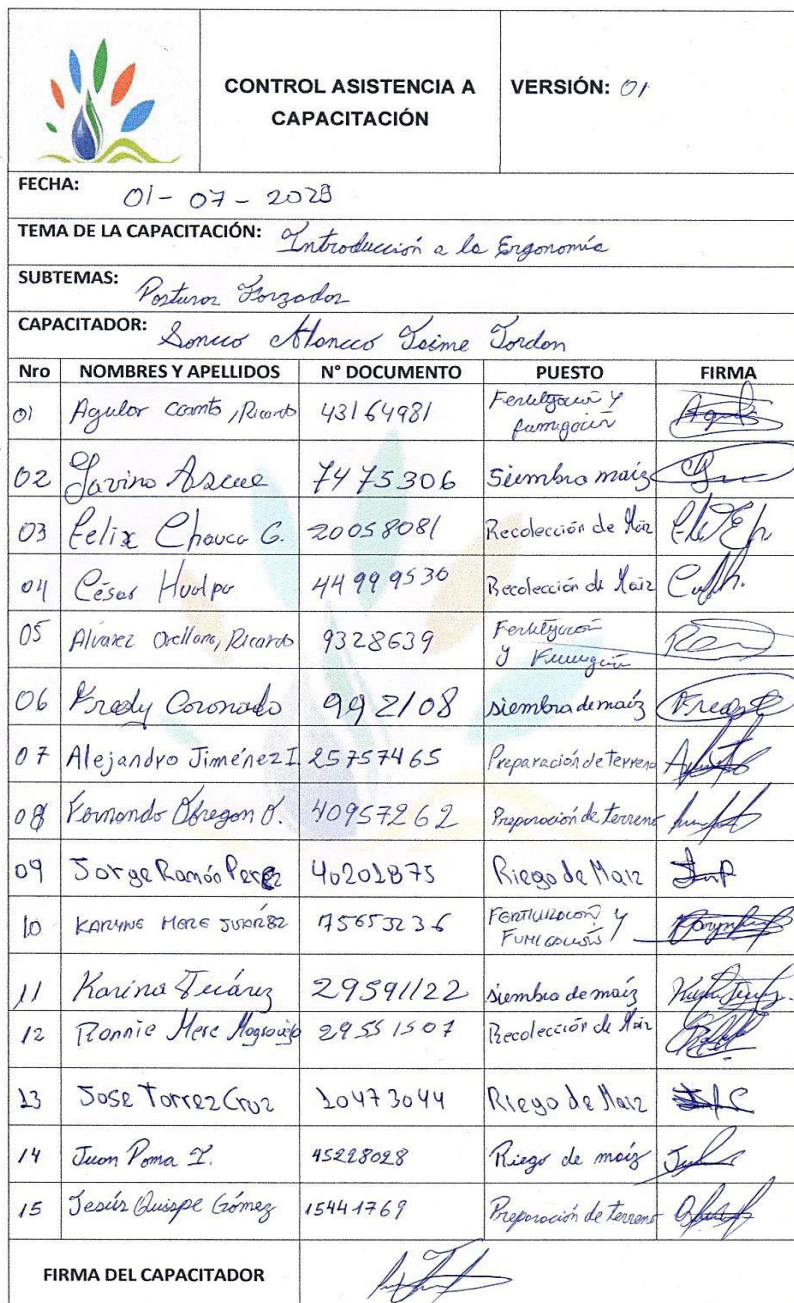 CONTROL ASISTENCIA A
CAPACITACIÓN
VERSIÓN: 01
FECHA: 01-07-2023
TEMA DE LA CAPACITACIÓN: Introducción a la Ergonomía
SUBTEMAS: Posturas Forzadas
CAPACITADOR: Soncco Jaime Jordan
Nro NOMBRES Y APELLIDOS N° DOCUMENTO PUESTO FIRMA
01 Aguilar Ccanto, Ricardo 43164981 Fertilización y
fumigación
02 Savino Azcue 7475306 Siembra maíz
03 Felix Chauca G. 20058081 Recolección de Maiz
04 César Hualpa 44999530 Recolección de Maiz
05 Alvarez Orellana, Ricardo 9328639 Fertilización
y Fumigación
06 Fredy Coronado 992108 siembra de maíz
07 Alejandro Jiménez I. 25757465 Preparación de terreno
08 Fernando Obregon O. 40957262 Preparación de terreno
09 Jorge Ramón Perez 40201875 Riego de Maiz
10 KARYNE MERE JUAREZ 75653236 FERTILIZACION Y
FUMIGACION
11 Karina Juárez 29591122 siembra de maíz
12 Ronnie Mere Mogrovejo 29551507 Recolección de Maiz
13 Jose Torrez Cruz 10473044 Riego de Maiz
14 Juan Poma I. 45228028 Riego de maíz
15 Jesús Quispe Gómez 15441769 Preparación de terreno
FIRMA DEL CAPACITADOR